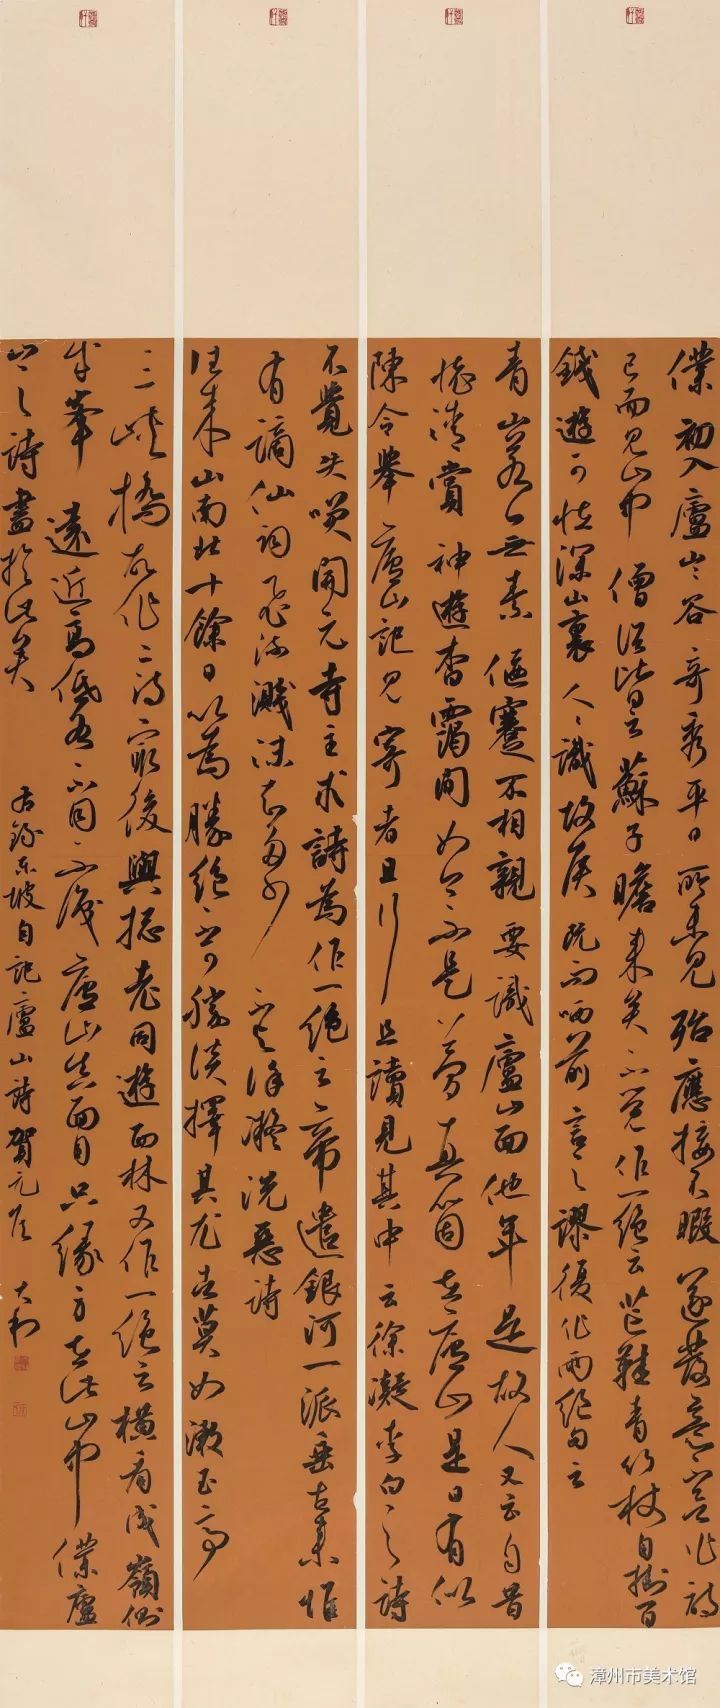 僕初入廬山山谷奇秀平日所未見殆應接不暇遂發意不欲作詩
已而見山中僧俗皆云蘇子瞻來矣不覺作一絕云芒鞋青竹杖自掛百
錢遊可怪深山裏人人識故侯既而哂前言之謬復作兩絕句云
青山若無素偃蹇不相親要識廬山面他年是故人又云自昔
懷清賞神遊杳靄間如今不是夢真箇在廬山是日有以
陳令舉廬山記見寄者且行且讀見其中云徐凝李白之詩
不覺失笑開元寺主求詩為作一絕云帝遣銀河一派垂古來惟
有謫仙詞飛流濺沫知多少不與徐凝洗惡詩
往來山南北十餘日以為勝絕不可勝談擇其尤者莫如漱玉亭
三峽橋故作二詩最後與摠老同遊西林又作一絕云橫看成嶺側
成峯遠近高低各不同不識廬山真面目只緣身在此山中僕廬
山之詩盡於此矣
右錄東坡自記廬山詩賀元
大利
漳州市美术馆